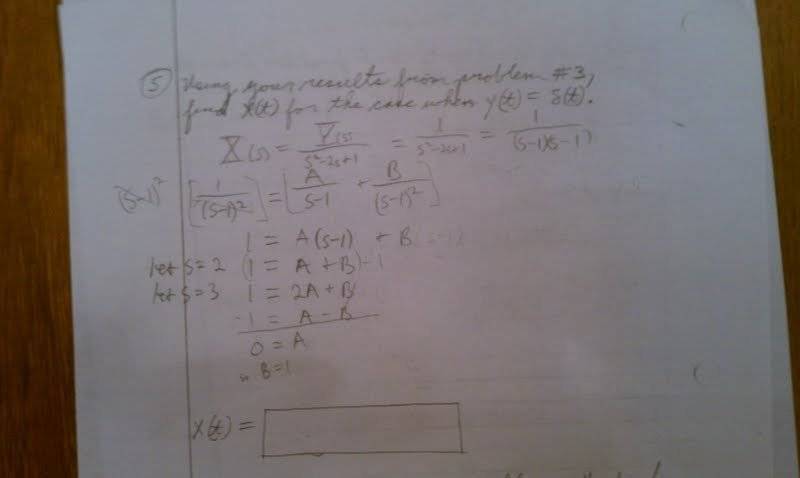 ⑤ Using your results from problem #3,
find x(t) for the case when y(t) = δ(t).
X(s) = Y(s)/(s²-2s+1) = 1/(s²-2s+1) = 1/((s-1)(s-1))
(s-1)² [1/(s-1)²] = [A/(s-1) + B/(s-1)²]
1 = A(s-1) + B
let s=2 (1 = A + B) -1
let s=3 1 = 2A + B
-1 = A - B
0 = A
∴ B=1
x(t) =